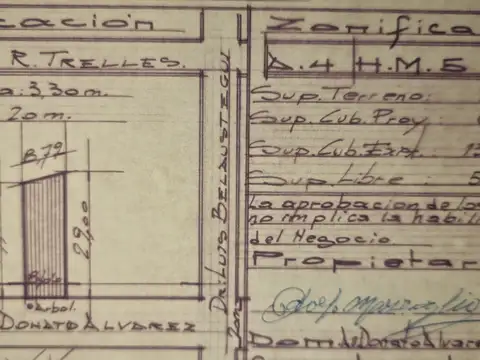 cación
R. TRELLES.
a: 3,30 m.
20 m.
8,79
29,00
Arbol.
DONATO ALVAREZ
Dr. LUIS BELAUSTEGUI
Zonifica
A.4 H.M.5
Sup. Terreno:
Sup. Cub. Proy
Sup. Cub. Exis.
Sup. Libre : 5
La aprobacion de los
no implica la habili
del Negocio
Propietar
Dom. Donato Alvare